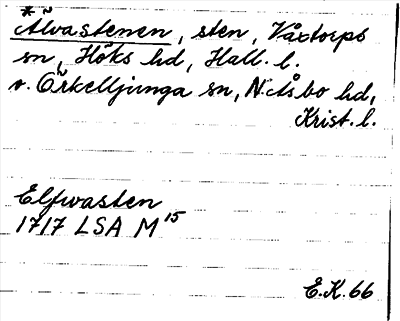 *Älvastenen, sten, Våxtorps
sn, Höks hd, Hall. l.
v. Örkelljunga sn, N. Åsbo hd,
Krist. l.
Elfwasten
1717 LSA M 15
E.K. 66